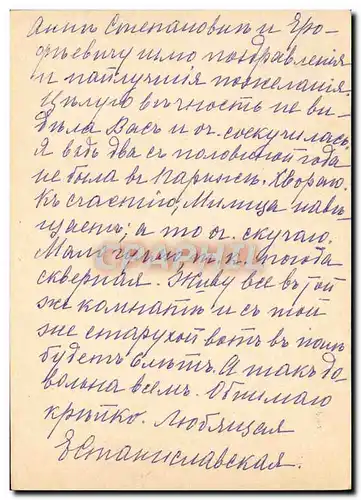 Аннѣ Степановнѣ и Еро-
фѣевичу шлю поздравленія
и наилучшія пожеланія.
Цѣлую вѣчность не ви-
дѣла Васъ и оч. соскучилась.
Я вѣдь два съ половиной года
не была въ Парижѣ. Хвораю.
Къ счастію, Милица навѣ-
щаетъ, а то оч. скучаю.
Мало гуляю, т.к. погода
скверная. Живу все въ той
же комнатѣ и съ той
же старухой вотъ въ
будетъ 6 лѣтъ. А такъ до-
вольна всѣмъ. Обнимаю
крѣпко. Любящая
Е Станиславская.